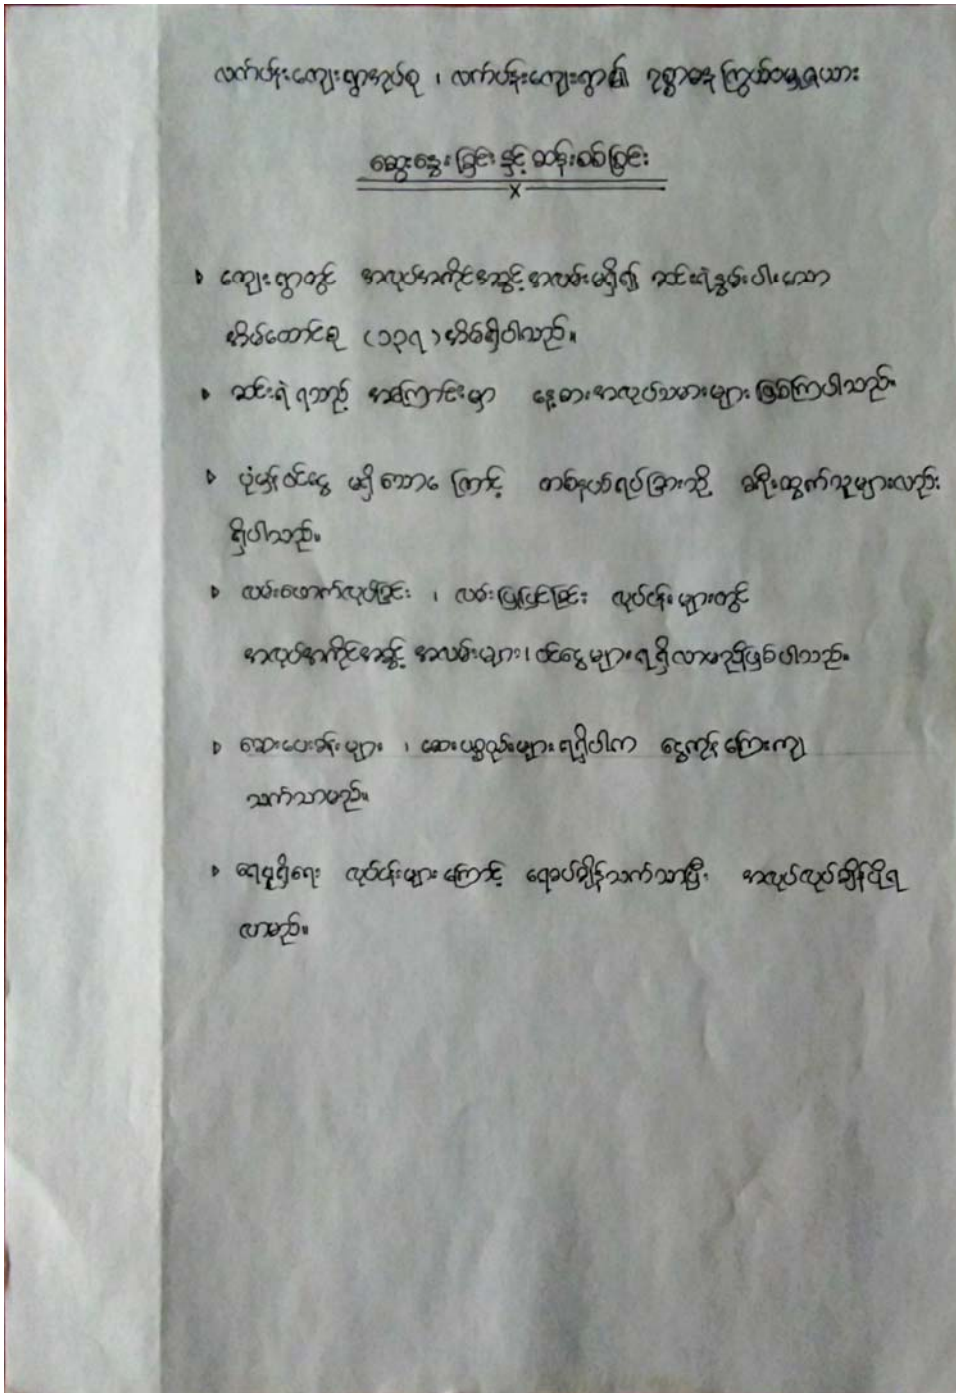 လက်ပန်းကျေးရွာအုပ်စု ၊ လက်ပန်းကျေးရွာ၏ ဥစ္စာဓန ကြွယ်ဝမှုဇယား
ဆွေးနွေးခြင်း နှင့် ဆန်းစစ်ခြင်း
ကျေးရွာတွင် အလုပ်အကိုင်အခွင့်အလမ်းမရှိ၍ ဆင်းရဲနွမ်းပါးသော
အိမ်ထောင်စု (၁၃၇) အိမ်ရှိပါသည်။
ဆင်းရဲ ရသည့် အကြောင်းမှာ နေ့စားအလုပ်သမားများ ဖြစ်ကြပါသည်။
ပုံမှန်ဝင်ငွေ မရှိသောကြောင့် တစ်နယ်ရပ်ခြားသို့ ခရီးထွက်သူများလည်း
ရှိပါသည်။
လမ်းဖောက်လုပ်ခြင်း ၊ လမ်းပြုပြင်ခြင်း လုပ်ငန်းများတွင်
အလုပ်အကိုင်အခွင့် အလမ်းများ၊ ဝင်ငွေများ ရရှိလာမည်ဖြစ်ပါသည်။
ဆေးပေးခန်းများ ၊ ဆေးပစ္စည်းများ ရရှိပါက ငွေကုန်ကြေးကျ
သက်သာမည်။
ရေရရှိရေး လုပ်ငန်းများကြောင့် ရေခပ်ချိန်သက်သာပြီး အလုပ်လုပ်ချိန်ပိုရ
လာမည်။